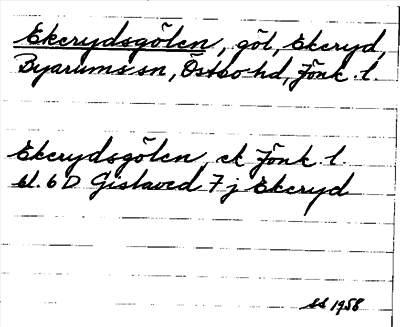 Ekerydsgölen, göl, Ekeryd,
Byarums sn, Östbo hd, Jönk. l.
Ekerydsgölen, ek Jönk. l.
bl. 6 D Gislaved 7 j Ekeryd
1958